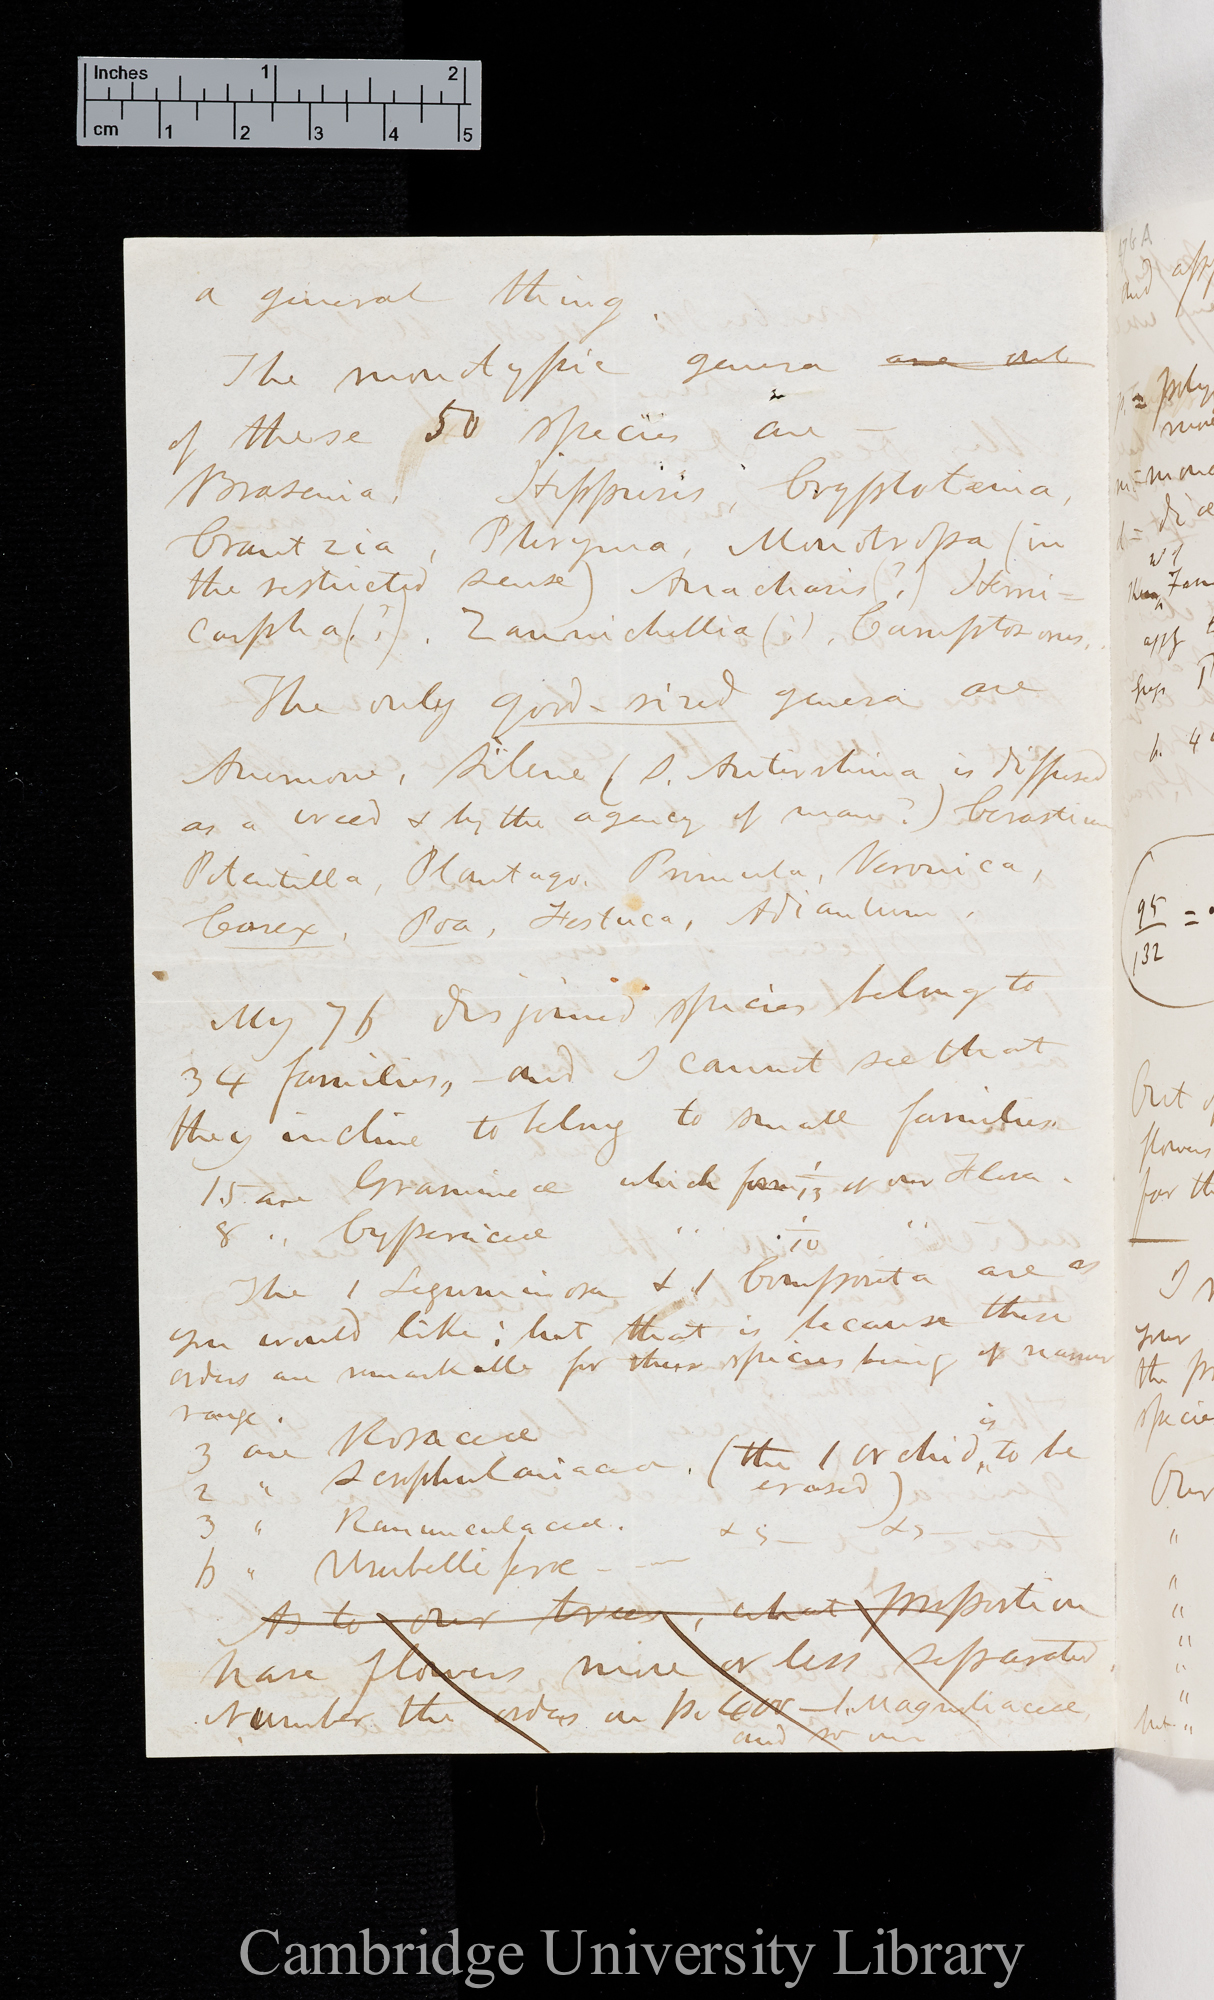 Inches 1 2
cm 1 2 3 4 5
a general thing.
The monotypic genera are out
of these 50 species are —
Brasenia, Hippuris, Cryptotænia,
Crantzia, Phryma, Monotropa (in
the restricted sense) Anacharis (?) Hemi=
carpha (?), Zannichellia (?), Camptosorus.
The only good-sized genera are
Anemone, Silene (S. Antirrhina is diffused
as a weed & by the agency of man?) Cerastium
Potentilla, Plantago, Primula, Veronica,
Carex, Poa, Festuca, Adiantum.
My 76 disjoined species belong to
34 families, — and I cannot see that
they incline to belong to small families.
15 are Gramineæ which form 1/13 of our Flora.
8 " Cyperaceæ " 1/10 "
The 1 Leguminosa & 1 Composita are as
you would like; but that is because these
orders are remarkable for their species being of narrow
range.
3 are Rosaceæ
2 " Scrophulariaceæ. (the 1 orchid is to be
erased)
3 " Ranunculaceæ. & s— &s—
6 " Umbelliferæ — —
As to our trees, what proportion
have flowers more or less separated.
Number the orders on p. — 1. Magnoliaceæ,
and so on
176A
and
p. = poly
m = mono
d = diœ
p. 4
95
132
=
Out of
flowers
for th
I
your
the
specie
Our
"
"
"
"
"
"
but "
Cambridge University Library